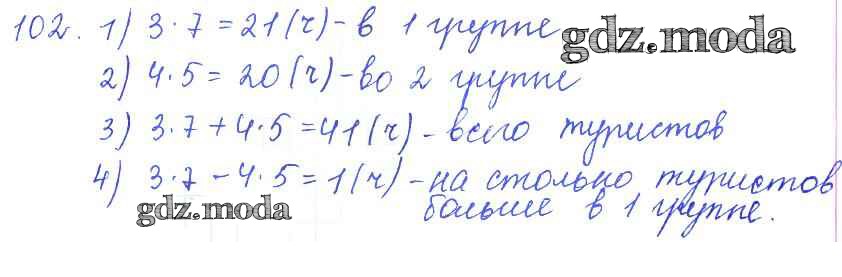 102. 1) 3·7=21(ч)-в 1 группе
gdz.moda
2) 4·5=20(ч)-во 2 группе
3) 3·7+4·5=41(ч)-всего туристов
4) 3·7-4·5=1(ч)-на столько туристов
gdz.moda
больше в 1 группе.